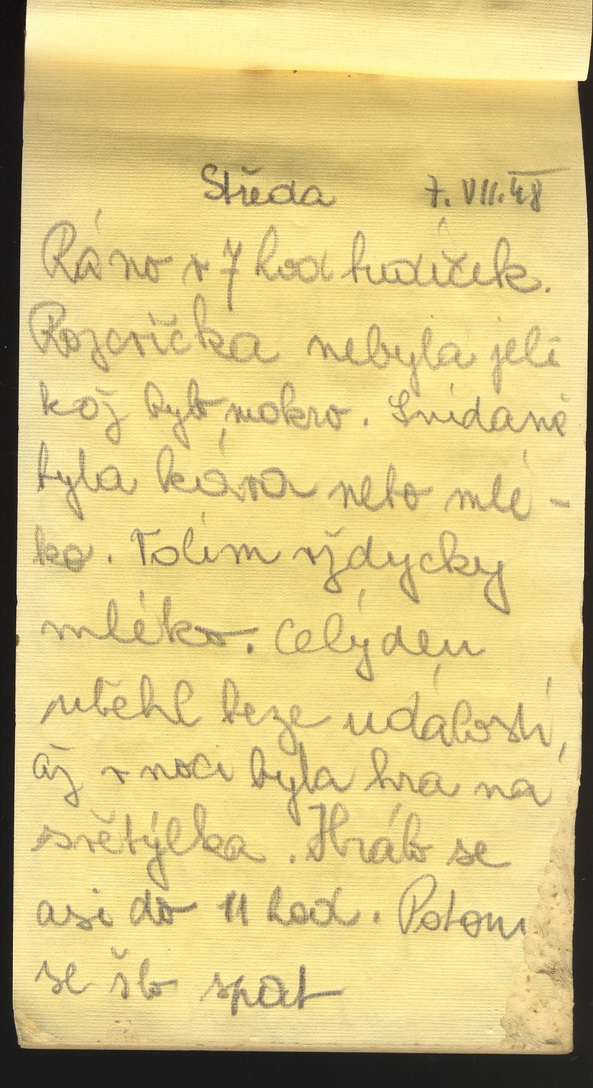 Středa 7. VII. 48
Ráno v 7 hod budíček.
Rozcvička nebyla jeli
kož bylo mokro. Snídaně
byla káva nebo mlé-
ko. Volím vždycky
mléko. Celý den
utěhl beze událostí,
až v noci byla hra na
světýlka. Hrálo se
asi do 11 hod. Potom
se šlo spat